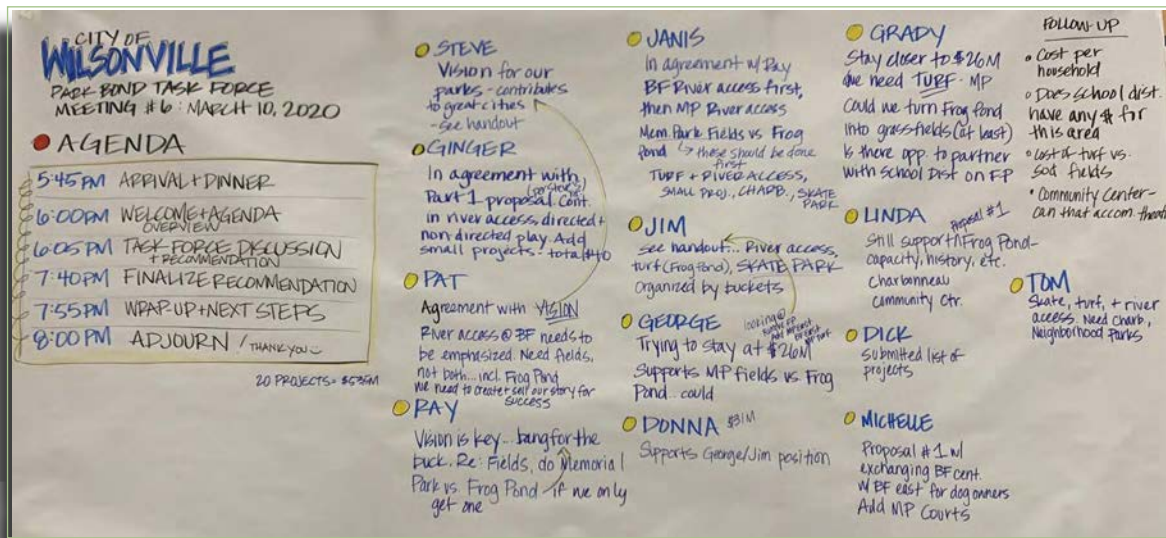 CITY OF
WILSONVILLE
PARK BOND TASK FORCE
MEETING #6: MARCH 10, 2020
AGENDA
5:45 PM ARRIVAL + DINNER
6:00PM WELCOME + AGENDA
OVERVIEW
6:05 PM TASK FORCE DISCUSSION
+ RECOMMENDATION
7:40PM FINALIZE RECOMMENDATION
7:55PM WRAP-UP + NEXT STEPS
8:00 PM ADJOURN / THANK YOU
20 PROJECTS = $53.5M
STEVE
Vision for our
parks - contributes
to great cities
- see handout
GINGER
In agreement with
Part 1 proposal Cont.
in river access, directed +
non-directed play. Add
small projects - total $40
PAT
Agreement with VISION
River access @ BF needs to
be emphasized. Need fields,
not both... incl. Frog Pond
we need to create + sell our story for
success
RAY
Vision is key... bang for the
buck. Re: Fields, do Memorial
Park vs. Frog Pond - if we only
get one
JANIS
In agreement w/ Ray
BF River access first,
then MP River access
Mem. Park Fields vs Frog
Pond these should be done
first
TURF + RIVER ACCESS,
SMALL PROJ., CHARB., SKATE
PARK
JIM
see handout... River access,
turf (Frog Pond), SKATE PARK
Organized by buckets
GEORGE
looking @
Trying to stay at $26M
Supports MP fields vs Frog
Pond... could
DONNA $31M
Supports George/Jim position
GRADY
Stay closer to $26M
we need TURF - MP
Could we turn Frog Pond
into grass fields (at least)
Is there opp. to partner
with School Dist on FP
LINDA
Proposal #1
Still support Frog Pond-
capacity, history, etc.
Charbonneau
Community Ctr.
DICK
submitted list of
projects
MICHELLE
Proposal #1 w/
exchanging BF cent.
w/ BF east for dog owners
Add MP Courts
FOLLOW-UP
Cost per
household
Does school dist.
have any $ for
this area
Cost of turf vs.
sod fields
Community Center-
can that accom.
TOM
Skate, turf, + river
access. Need Charb.,
Neighborhood Parks